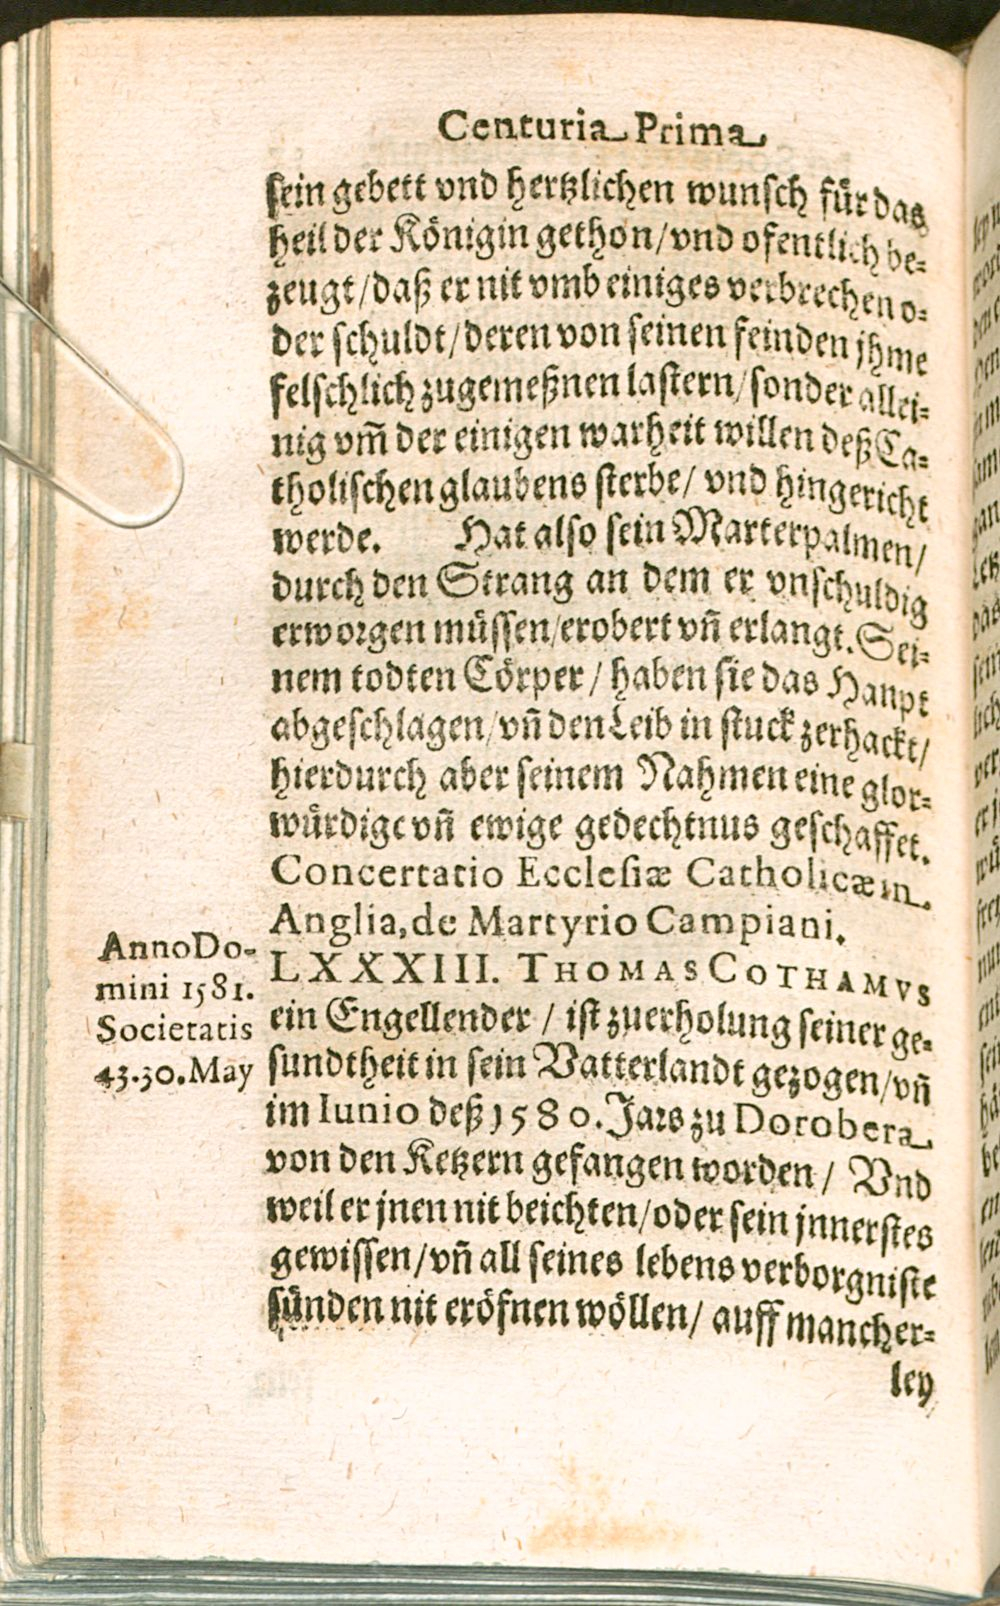 Centuria Prima
sein gebett vnd hertzlichen wunsch für das
heil der Königin gethon/vnd ofentlich be⸗
zeugt/daß er nit vmb einiges verbrechen o⸗
der schuldt/deren von seinen feinden jhme
felschlich zugemeßnen lastern/sonder allei⸗
nig vm̄ der einigen warheit willen deß Ca⸗
tholischen glaubens sterbe/ vnd hingericht
werde. Hat also sein Marterpalmen/
durch den Strang an dem er vnschuldig
erworgen müssen/erobert vn̄ erlangt. Sei⸗
nem todten Cörper / haben sie das Haupt
abgeschlagen/vn̄ den Leib in stuck zerhackt/
hierdurch aber seinem Nahmen eine glor⸗
würdige vn̄ ewige gedechtnus geschaffet.
Concertatio Ecclesiæ Catholicæ in
Anglia, de Martyrio Campiani.
LXXXIII. THOMAS COTHAMVS
ein Engellender / ist zuerholung seiner ge⸗
sundtheit in sein Vatterlandt gezogen/vn̄
im Iunio deß 1580. Jars zu Dorobera
von den Ketzern gefangen worden/ Vnd
weil er jnen nit beichten/oder sein jnnerstes
gewissen/vn̄ all seines lebens verborgniste
sünden nit eröfnen wöllen/ auff mancher⸗
ley
Anno Do-
mini 1581.
Societatis
43.30. May